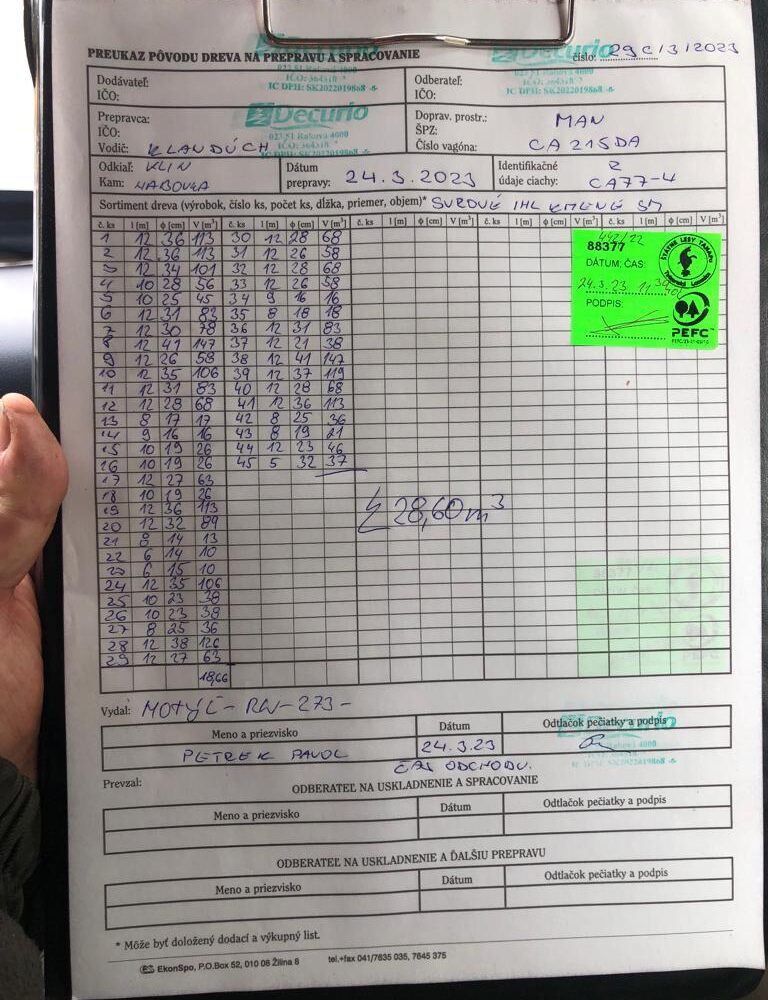 PREUKAZ PÔVODU DREVA NA PREPRAVU A SPRACOVANIE
číslo: 29c/3/2023
Decurio
Dodávateľ:
IČO:
IČ DPH: SK2022019868
Odberateľ:
IČO:
Prepravca:
IČO:
Vodič: KLANDÚCH
Decurio
023 51 Raková 4000
Doprav. prostr.: MAN
ŠPZ:
Číslo vagóna: CA215DA
Odkiaľ: KLIN
Kam: HABOVKA
Dátum
prepravy: 24.3.2023
Identifikačné
údaje ciachy: 2
CA77-4
Sortiment dreva (výrobok, číslo ks, počet ks, dĺžka, priemer, objem)* SUROVÉ IHL KMENE SM
č. ks l [m] ϕ [cm] V [m³] č. ks l [m] ϕ [cm] V [m³] č. ks l [m] ϕ [cm] V [m³] č. ks l [m] ϕ [cm] V [m³] č. ks l [m] ϕ [cm] V [m³]
1 12 36 113 30 12 28 68
2 12 36 113 31 12 26 58
3 12 34 101 32 12 28 68
4 10 28 56 33 12 26 58
5 10 25 45 34 9 16 16
6 12 31 83 35 8 18 18
7 12 30 78 36 12 31 83
8 12 41 147 37 12 21 38
9 12 26 58 38 12 41 147
10 12 35 106 39 12 37 119
11 12 31 83 40 12 28 68
12 12 28 68 41 12 36 113
13 8 17 17 42 8 25 36
14 9 16 16 43 8 19 21
15 10 19 26 44 12 23 46
16 10 19 26 45 5 32 37
17 12 27 63
18 10 19 26
19 12 36 113
20 12 32 89
21 8 14 13
22 6 14 10
23 6 15 10
24 12 35 106
25 10 23 38
26 10 23 38
27 8 25 36
28 12 38 126
29 12 27 63
18,66
28,60 m³
442/22
88377
DÁTUM: ČAS:
24.3.23 11
PODPIS:
ŠTÁTNE LESY TANAPU
PEFC
Vydal: MOTYĽ - RW - 273 -
Meno a priezvisko Dátum Odtlačok pečiatky a podpis
PETREK PAVOL 24.3.23
ČAS ODCHODU.
Prevzal:
ODBERATEĽ NA USKLADNENIE A SPRACOVANIE
Meno a priezvisko Dátum Odtlačok pečiatky a podpis
ODBERATEĽ NA USKLADNENIE A ĎALŠIU PREPRAVU
Meno a priezvisko Dátum Odtlačok pečiatky a podpis
* Môže byť doložený dodací a výkupný list.
EkonSpo, P.O.Box 52, 010 08 Žilina 8 tel.+fax 041/7635 035, 7645 375